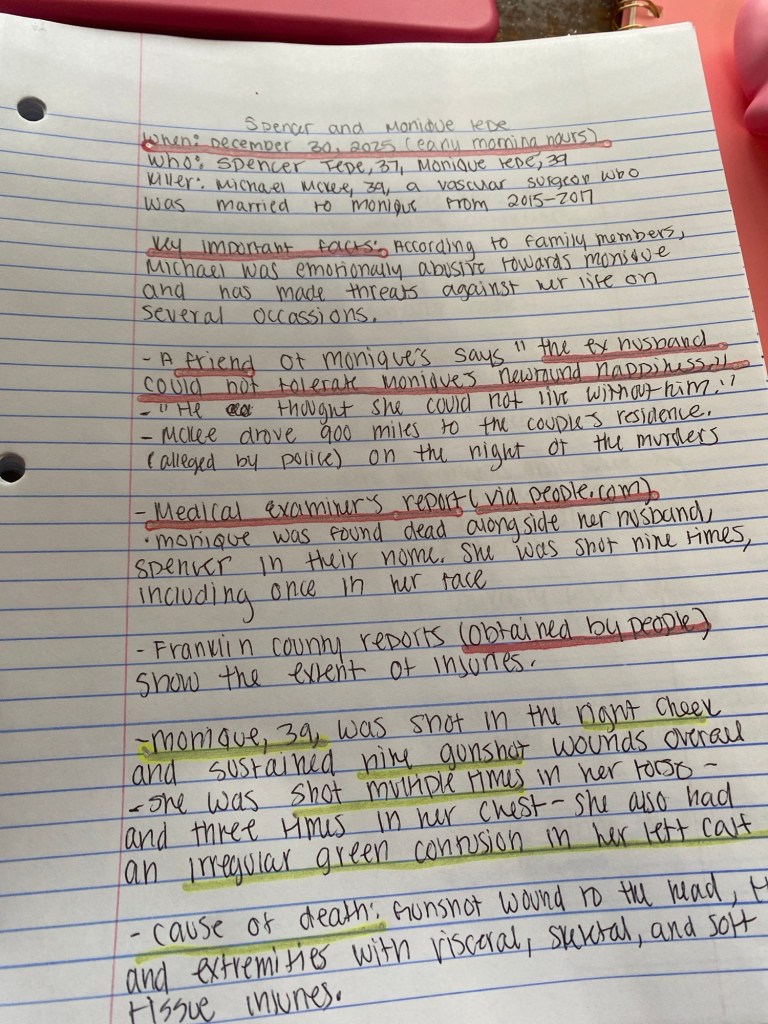 Spencer and Monique Tepe
When: December 30, 2025 (early morning hours)
Who: Spencer Tepe, 37, Monique Tepe, 39
Killer: Michael McKee, 39, a vascular surgeon who
was married to Monique from 2015-2017
Key important facts: According to family members,
Michael was emotionally abusive towards monique
and has made threats against her life on
several occassions.
- A friend of monique's says "the ex husband
could not tolerate Monique's newfound happiness."
- "He thought she could not live without him."
- McKee drove 900 miles to the couple's residence.
(alleged by police) on the night of the murders
- Medical examiner's report (via people.com)
• monique was found dead alongside her husband,
spencer in their home. She was shot nine times,
including once in her face
- Franklin county reports (obtained by people)
show the extent of injuries.
- monique, 39, was shot in the right cheek
and sustained nine gunshot wounds overall
- she was shot multiple times in her torso -
and three times in her chest - she also had
an irregular green contusion in her left calf
- cause of death: Gunshot wound to the head,
and extremities with visceral, skeletal, and soft
tissue injuries.